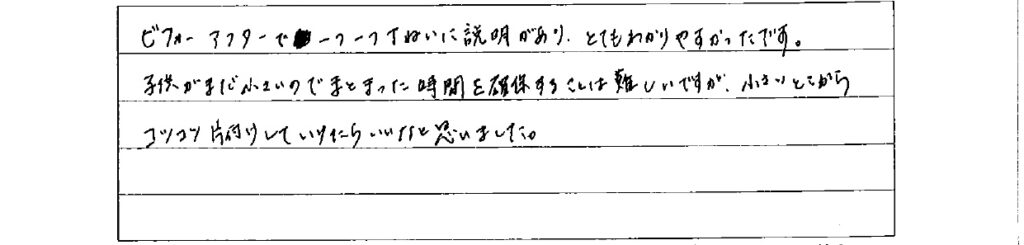 ビフォーアフターで一つ一つていねいに説明があり、とてもわかりやすかったです。
子供がまだ小さいのでまとまった時間を確保することは難しいですが、小さいとこから
コツコツ片付けしていけたらいいなと思いました。